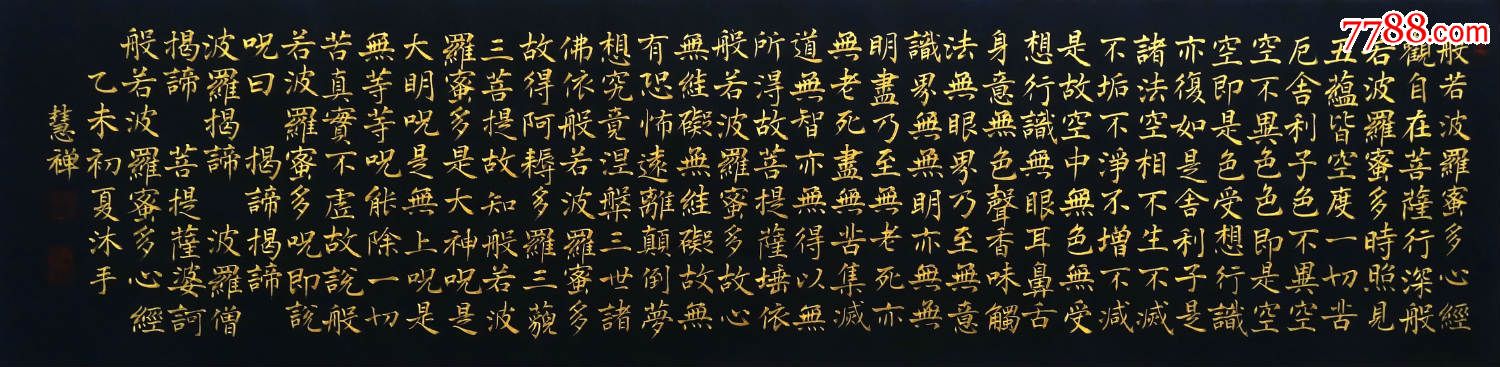 7788.com
般若波羅蜜多心經
觀自在菩薩行深般
若波羅蜜多時照見
五蘊皆空度一切苦
厄舍利子色不異空
空不異色色即是空
空即是色受想行識
亦復如是舍利子是
諸法空相不生不滅
不垢不淨不增不減
是故空中無色無受
想行識無眼耳鼻舌
身意無色聲香味觸
法無眼界乃至無意
識界無無明亦無無
明盡乃至無老死亦
無老死盡無苦集滅
道無智亦無得以無
所得故菩提薩埵依
般若波羅蜜多故心
無絓礙無絓礙故無
有恐怖遠離顛倒夢
想究竟涅槃三世諸
佛依般若波羅蜜多
故得阿耨多羅三藐
三菩提故知般若波
羅蜜多是大神呪是
大明呪是無上呪是
無等等呪能除一切
苦真實不虛故說般
若波羅蜜多呪即說
呪曰 揭諦揭諦
波羅揭諦 波羅僧
揭諦 菩提薩婆訶
般若波羅蜜多心經
乙未初夏沐手
慧禪